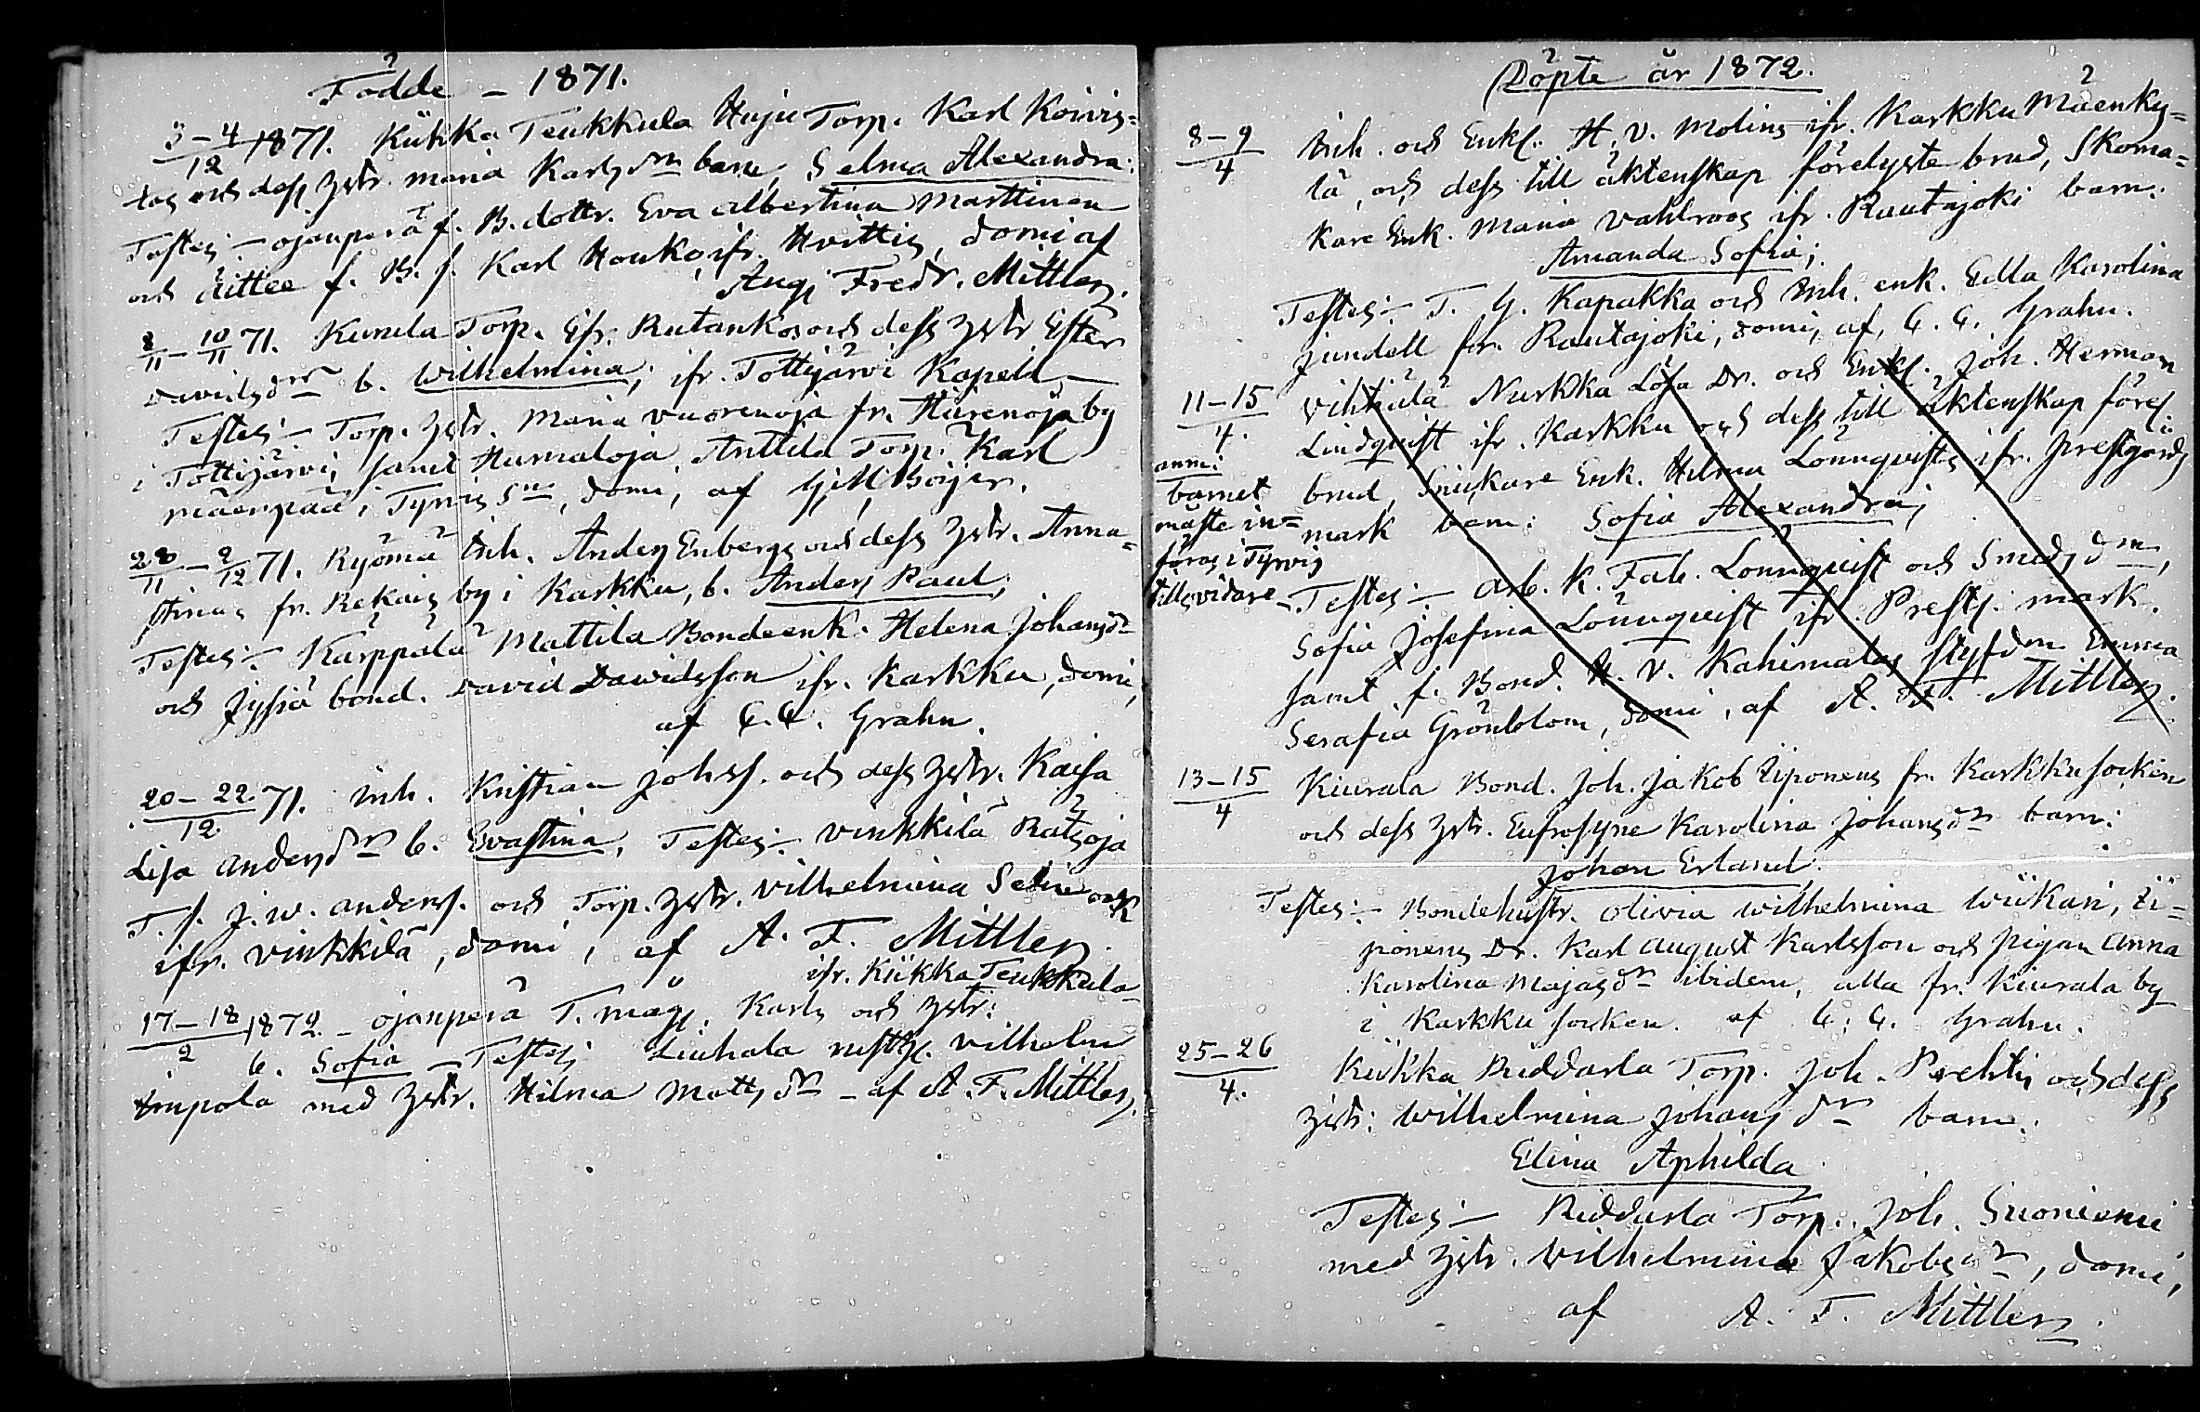 Födde – 1871.
3–4/12 1871. Kiikka Teukkula Huju Torp. Karl Koivis=
tos och dess hstr. Maria Karlsdr barn, Selma Alexandra;
Testes:– Ojanperä f. B. dottr. Eva Albertina Marttinen
och dittee f. B. s. Karl Houko ifr. Hvittis, domi, af
Aug. Fredr. Mittler.
8/11 – 10/11 71. Kunila Torp. Efr. Rutankos och dess hstr Ester
Davidsdr b. Wilhelmina; ifr. Tottijärvi Kapell –
Testes:– Torp. hstr. Maria Vuorenoja fr. Hiirenoja by
i Tottijärvi, samt Humaloja Anttila Torp. Karl
Mäenpää, i Tyrvis Sn, domi, af G. M. Börjer.
28/11 – 2/12 71. Ryömä Inh. Anders Enbergs och dess hstr. Anna=
stinas fr. Rekois by i Karkku, b. Anders Paul;
Testes:– Karppala Mattila Bondeenk. Helena Johansdr
och Jyssiä bond. David Davidsson ifr. Karkku, domi,
af C. C. Grahn.
20–22/12 71. Inh. Kristian Johss. och dess hstr. Kaisa
Lisa Andersdr b. Evastina, Testes:– Vinkkilä Ratsoja
T. s. J. W. Anderss. och Torp. hstr. Vilhelmina
ifr. Vinkkilä, domi, af A. F. Mittler.
ifr. Kiikka Teukkula
17–18/2 1872. – Ojanperä T. mag. Karls och hstr:
b. Sofia – Testes; Liuhala Vilhelm
Impola med hstr. Hilma Mattsdr – af A. F. Mittler.
Döpte år 1872.
8–9/4 Inh. och Enkl. H. V. Molins ifr. Karkku Mäenky=
lä, och dess till äktenskap förelyste brud, Skoma=
kare Enk. Maria Vahlroos ifr. Rautajoki barn:
Amanda Sofia;
Testes:– T. G. Kapakka och Inh. enk. Edla Karolina
Jundell fr. Rautajoki, domi, af, C. C. Grahn.
11–15/4. Vihtiälä Nurkka Lösa Dr. och Enkl. Joh. Herman
Lindqvist ifr. Karkku och dess till äktenskap förel.
brud, Snickare Enk. Hilma Lönnqvists ifr. Prestgårds
mark barn: Sofia Alexandra;
anm:
barnet
måste in=
föras i Tyrvis
tillsvidare –
Testes:– Arb. K. Fab. Lönnqvist och Smeds dm,
Sofia Josefina Lönnqvist ifr. Prestg. mark.
samt f. Bond. H. V. Kahimalas styfdm Emma
Serafia Grönblom, domi, af A. F. Mittler.
13–15/4 Kiurala Bond. Joh. Jakob Iiponens fr. Karkku socken
och dess hstr. Eufrosyne Karolina Johansdr barn:
Johan Erland.
Testes:– Bondehustr. Olivia Wilhelmina Wiikari, Ii=
ponens Dr. Karl August Karlsson och pigan Anna
Karolina Majasdr ibidem, alla fr. Kiurala by
i Karkku socken. af C. C. Grahn.
25–26/4. Kiikka Riddarla Torp. Joh. Prehtis och dess
hstr: Wilhelmina Johansdr barn:
Elina Aphilda
Testes:– Riddarla Torp. Joh. Suoniemi
med hstr. Vilhelmina Jakobsdr, domi,
af A. F. Mittler.